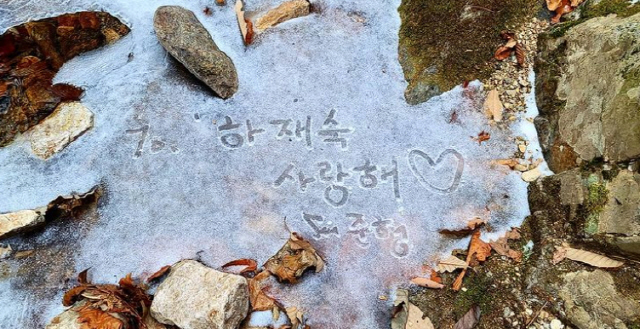 To. 하재숙
사랑해 ♡
준형